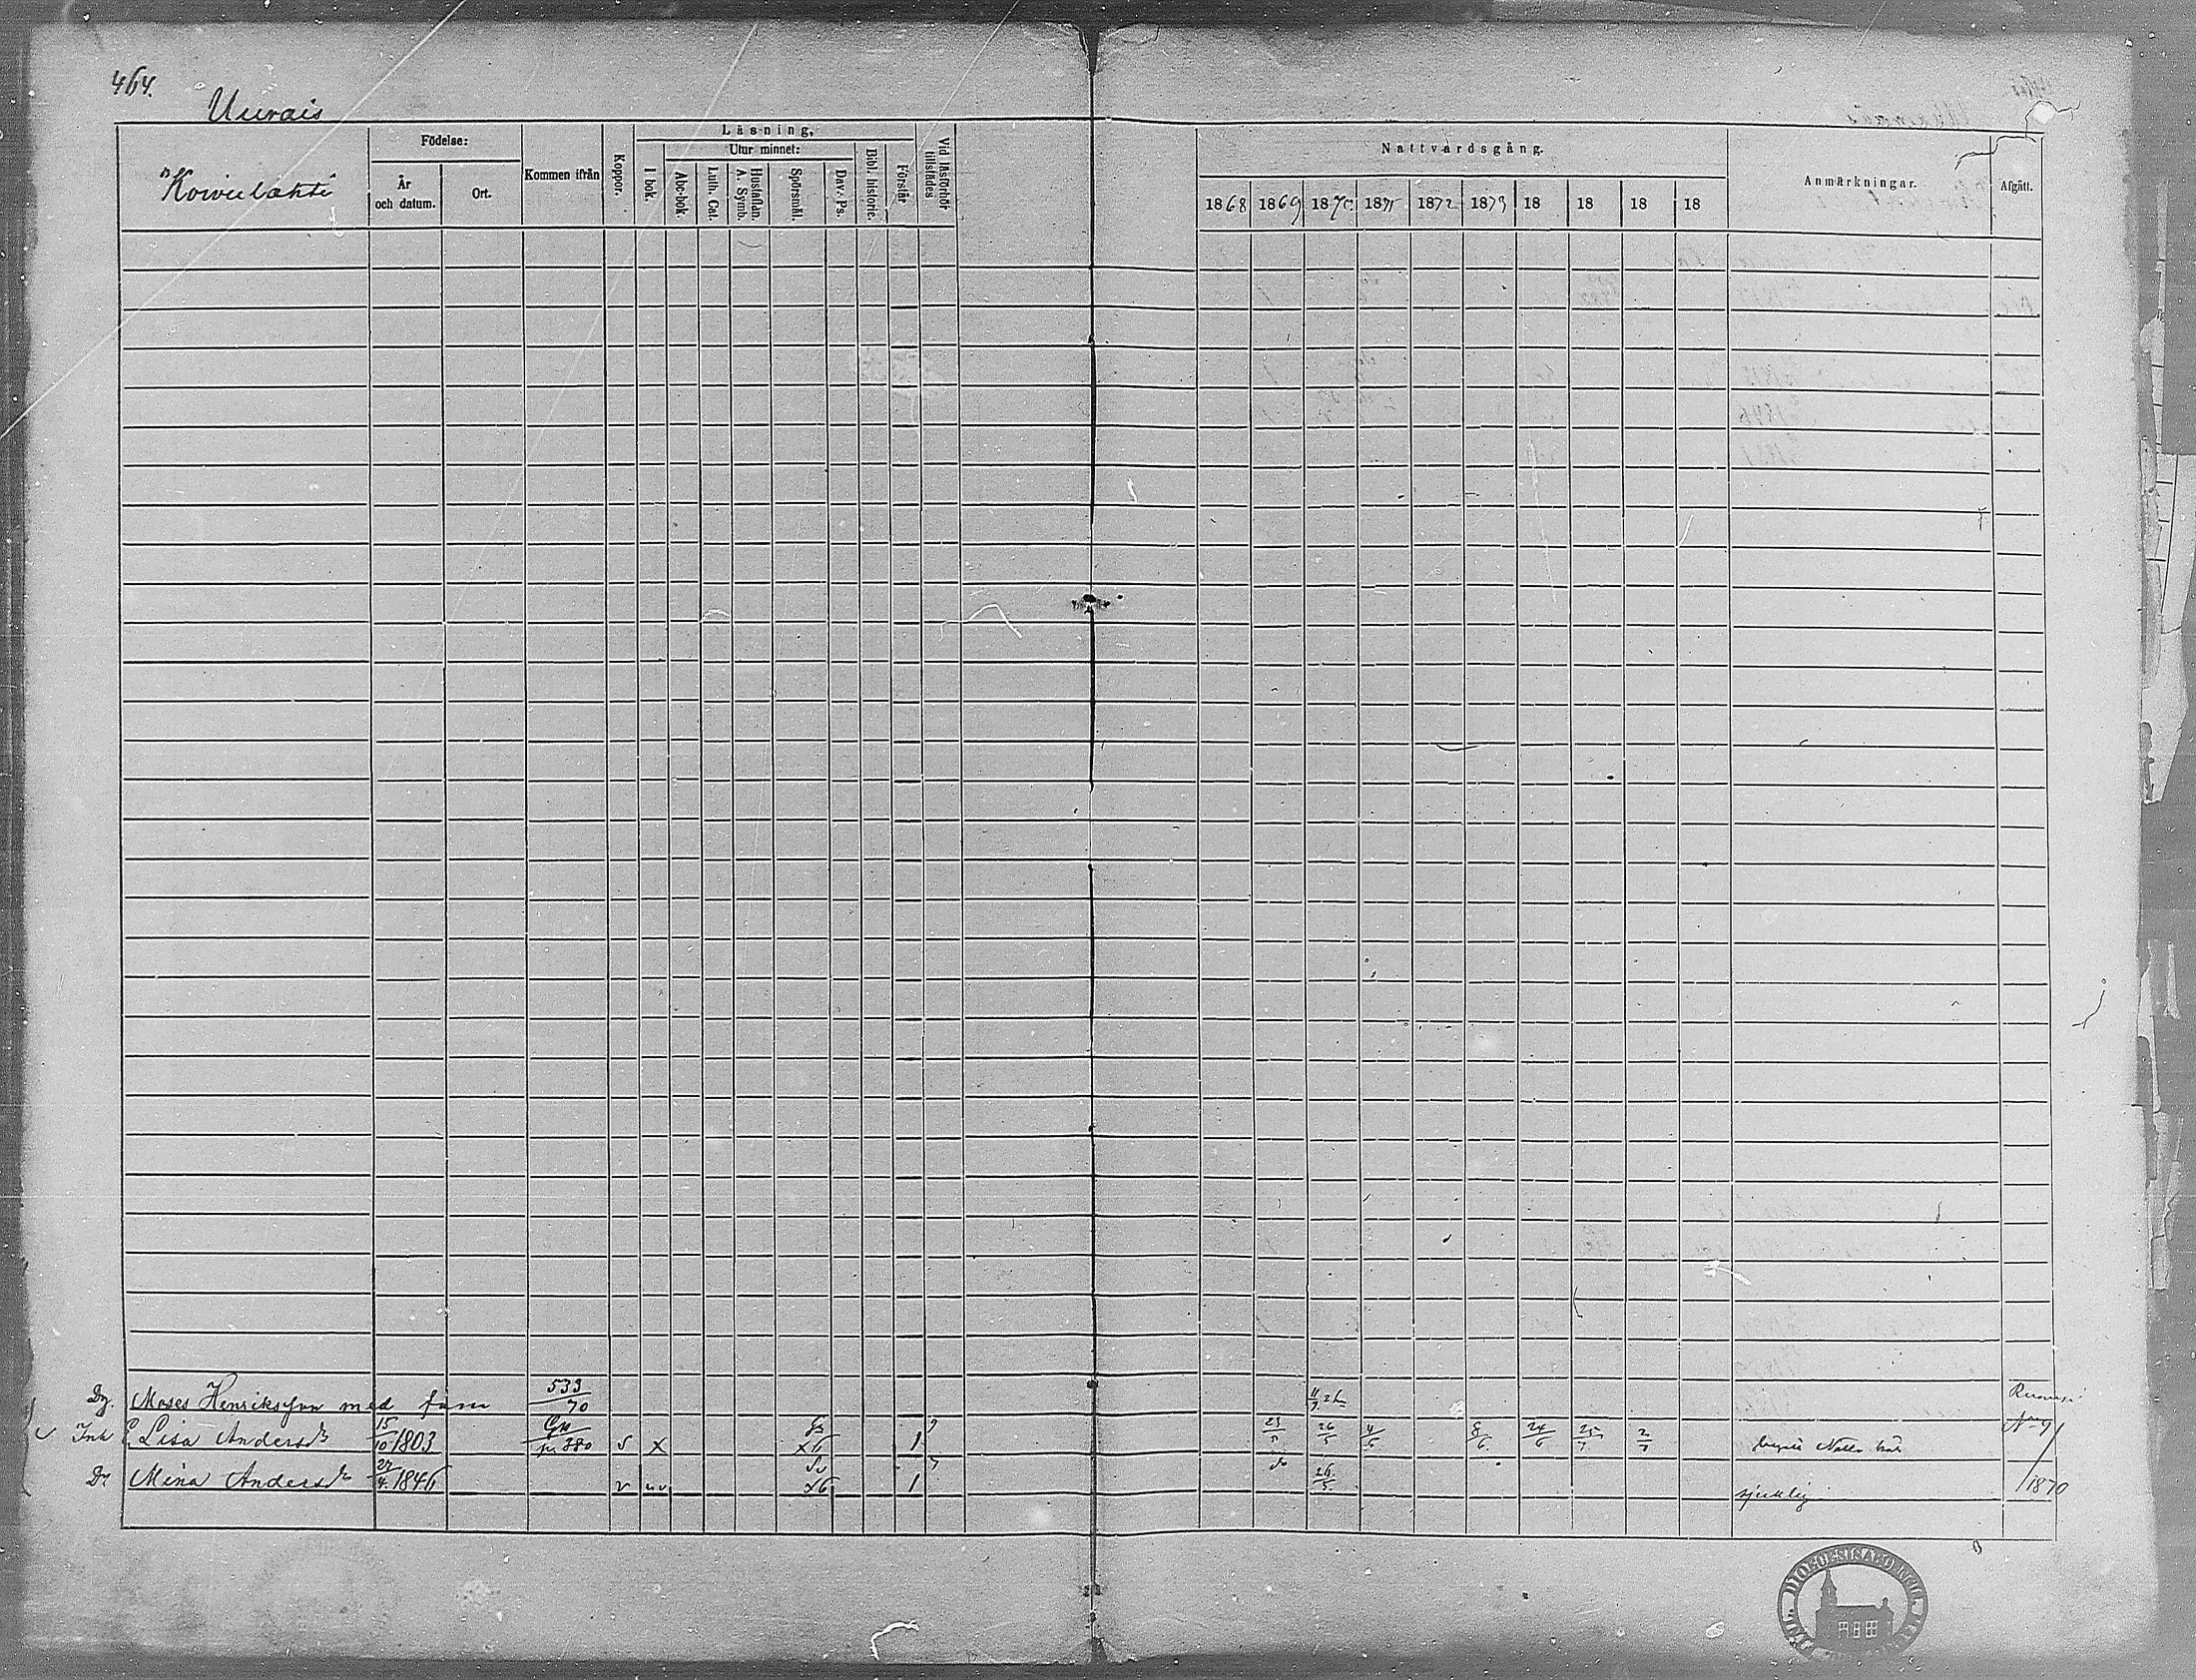 464.
Uurais
Koivulahti
Födelse:
År och datum.
Ort.
Kommen ifrån
Koppor.
Läsning,
I bok.
Utur minnet:
Abc-bok.
Luth. Cat.
Hustaflan. A. Symb.
Spörsmål.
Dav. Ps.
Bibl. historie.
Förstår
Vid läsförhör tillstädes
Nattvardsgång.
1868 1869 1870 1871 1872 1873 18 18 18 18
Anmärkningar.
Afgått.
Moses Henriksson med fam 533/70
Inh Lisa Andersd 15/10 1803 380 S X 1 23/5 26/5 4/6 8/6 24/6 25/7 2/7
Mina Andersd 27/4 1846 v 1 do 26/5 sjuklig 1870